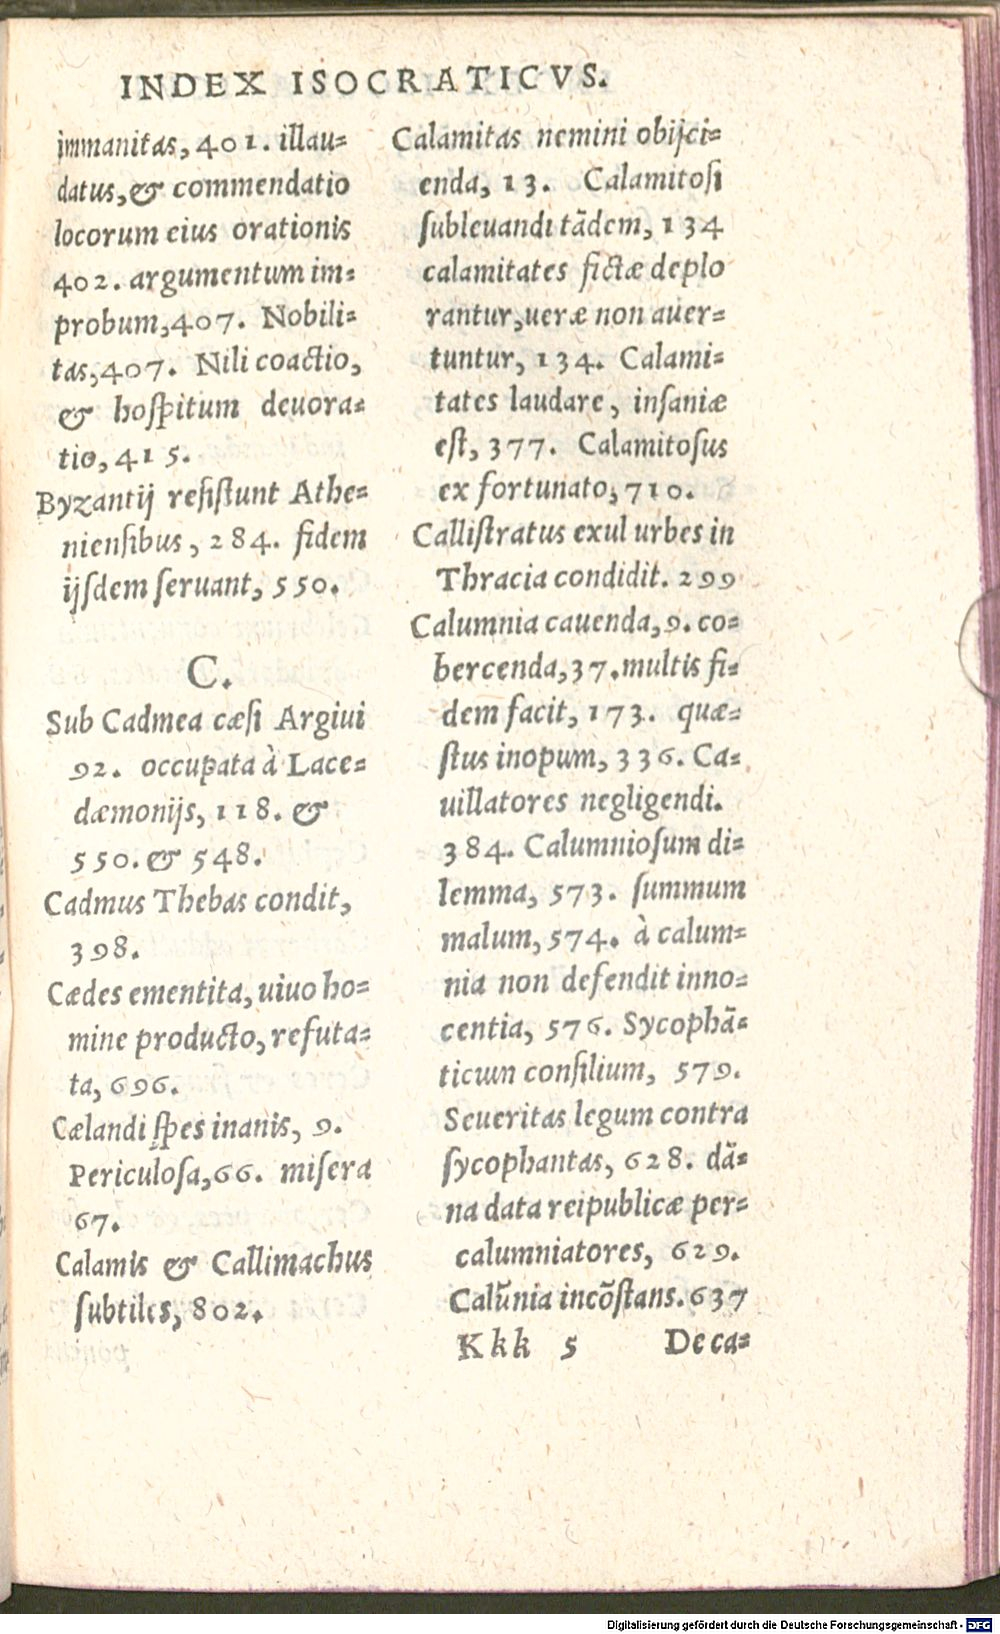 INDEX ISOCRATICVS.
immanitas, 401. illau=
datus, & commendatio
locorum eius orationis
402. argumentum im=
probum, 407. Nobili=
tas, 407. Nili coactio,
& hoſpitum deuora=
tio, 415.
Byzantij reſiſtunt Athe=
nienſibus, 284. fidem
ijſdem ſeruant, 550.
C.
Sub Cadmea cæſi Argiui
92. occupata à Lace=
dæmonijs, 118. &
550. & 548.
Cadmus Thebas condit,
398.
Cædes ementita, uiuo ho=
mine producto, refuta=
ta, 696.
Cælandi ſpes inanis, 9.
Periculoſa, 66. miſera
67.
Calamis & Callimachus
ſubtiles, 802.
Calamitas nemini obijci=
enda, 13. Calamitoſi
ſubleuandi tãdem, 134
calamitates fictæ deplo
rantur, ueræ non auer=
tuntur, 134. Calami=
tates laudare, inſaniæ
eſt, 377. Calamitoſus
ex fortunato, 710.
Calliſtratus exul urbes in
Thracia condidit. 299
Calumnia cauenda, 9. co=
hercenda, 37. multis fi=
dem facit, 173. quæ=
ſtus inopum, 336. Ca=
uillatores negligendi.
384. Calumnioſum di=
lemma, 573. ſummum
malum, 574. à calum=
nia non defendit inno=
centia, 576. Sycophã=
ticum conſilium, 579.
Seueritas legum contra
ſycophantas, 628. dã=
na data reipublicæ per=
calumniatores, 629.
Calũnia incõſtans. 637
Kkk 5 De ca=
Digitalisierung gefördert durch die Deutsche Forschungsgemeinschaft - DFG